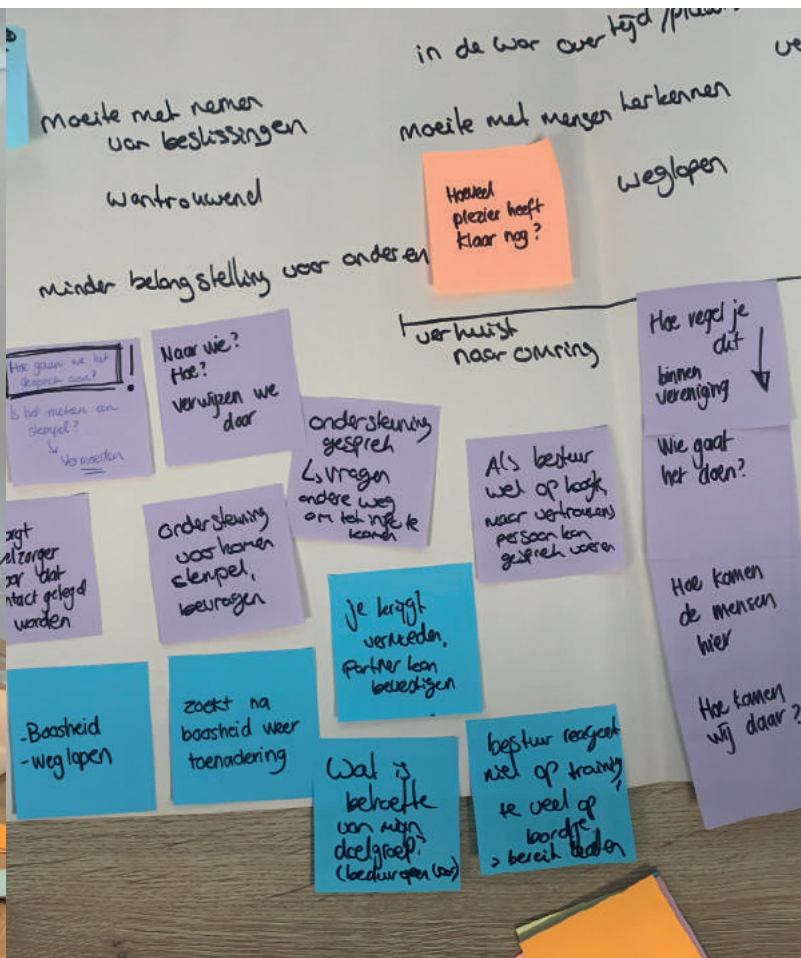 in de war over tijd /
moeite met nemen
van beslissingen
moeite met mensen herkennen
wantrouwend
weglopen
Hoeveel
plezier heeft
klaar nog?
minder belangstelling voor anderen
verhuist
naar omring
Hoe regel je
dit
binnen
vereniging
Hoe gaan we het
gesprek aan?
!
Is het meteen een
stempel?
Vermoeden
Naar wie?
Hoe?
verwijzen we
door
ondersteuning
gesprek
vragen
andere weg
om tot info te
komen
Als bestuur
wel op hoogte
maar vertrouwens
persoon kan
gesprek voeren
Wie gaat
het doen?
dat
gelegd
worden
ondersteuning
voorkomen
stempel,
bevragen
je krijgt
vermoeden,
partner kan
bevestigen
Hoe komen
de mensen
hier
Hoe komen
wij daar?
-Boosheid
-weglopen
zoekt na
boosheid weer
toenadering
Wat is
behoefte
van mijn
doelgroep?
bestuur reageert
niet op training,
te veel op
bordje
> bereik